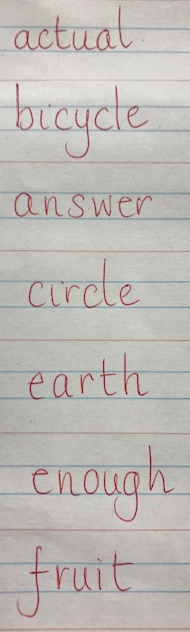 actual
bicycle
answer
circle
earth
enough
fruit